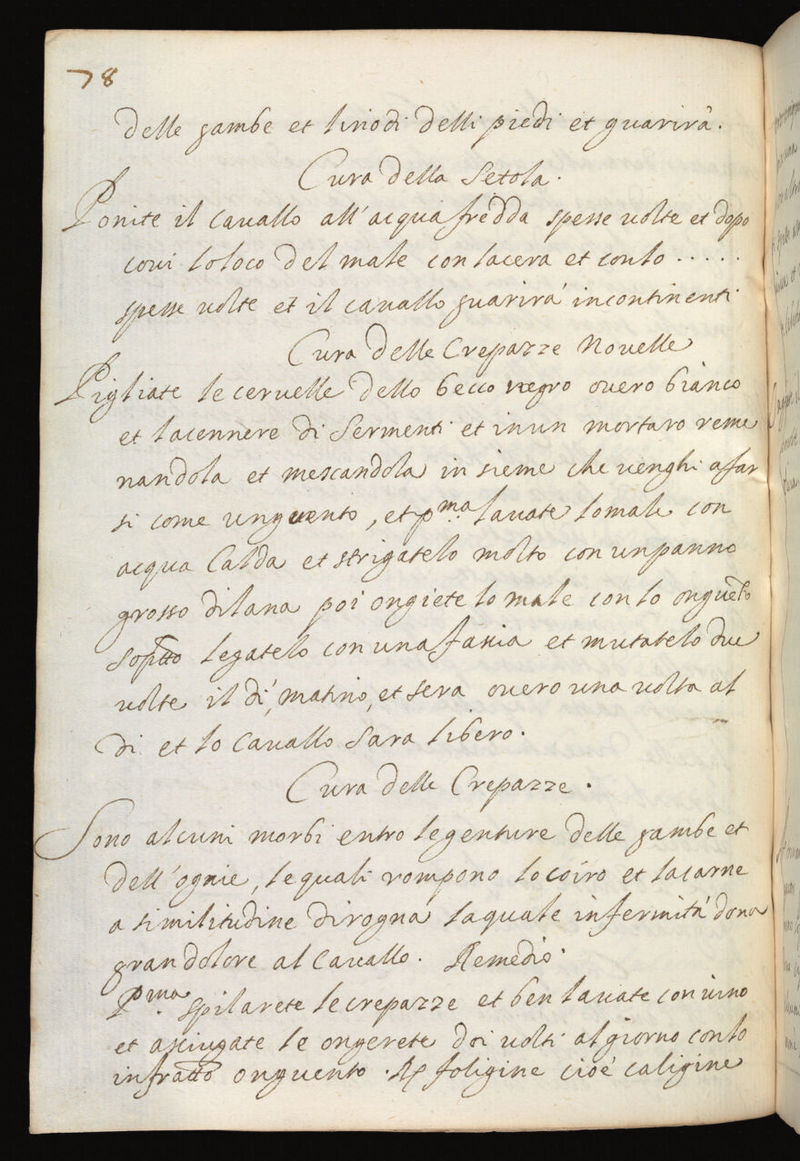 78
delle gambe et li nodi delli piedi et guarirà.
Cura della Setola.
Ponite il cavallo all'acqua fredda spesse volte et dopo
covi lo loco del male con la cera et con lo . . . . .
spesse volte et il cavallo guarirà incontinenti
Cura delle Crepazze Novelle
Pigliate le cervelle dello becco negro overo bianco
et la cennere di Sermenti et in un mortaro reme
nandola et mescandola insieme che venghi a far
si come unguento, et pma lavate lo male con
acqua Calda et strigatelo molto con un panno
grosso di lana poi ongiete lo male con lo onguento
sopitto legatelo con una fascia et mutatelo due
volte il dì, matino, et sera overo una volta al
di et lo Cavallo Sara libero.
Cura delle Crepazze.
Sono alcuni morbi entro le genture delle gambe et
dell'ognie, le quali rompono lo coiro et la carne
a similitudine di rogna la quale infermità dona
gran dolore al Cavallo. Remedio.
Pma spilarete le crepazze et ben lavate con vino
et asciugate le ongerete doi volti al giorno con lo
infratto onguento. ℞ foligine cioè caligine